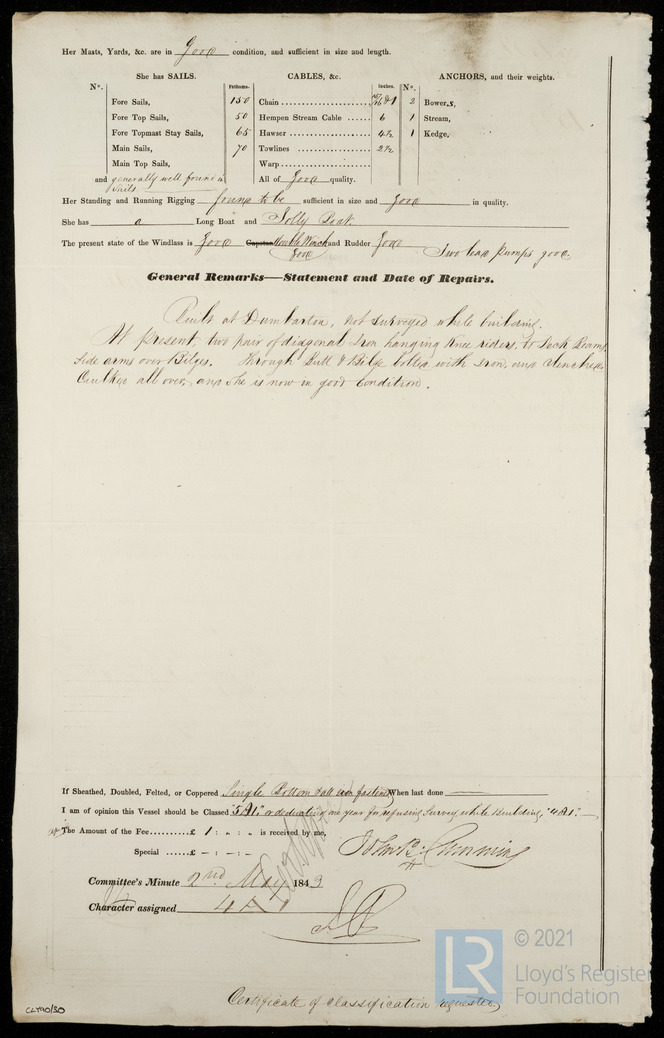 Her Masts, Yards, &c. are in Good condition, and sufficient in size and length.
She has SAILS. CABLES, &c. ANCHORS, and their weights.
N°. Fathoms. Inches. N°.
Fore Sails, 150 Chain & 1 2 Bowers,
Fore Top Sails, 50 Hempen Stream Cable 6 1 Stream,
Fore Topmast Stay Sails, 65 Hawser 4½ 1 Kedge,
Main Sails, 70 Towlines 2½
Main Top Sails, Warp
and generally well found in Sails All of Good quality.
Her Standing and Running Rigging found to be sufficient in size and good in quality.
She has a Long Boat and Jolly Boat.
The present state of the Windlass is Good Capstan Winch good and Rudder Good Two lead Pumps good.
General Remarks—Statement and Date of Repairs.
Built at Dumbarton, not surveyed while building.
At present, two pair of diagonal Iron hanging knee riders, to Deck Beams,
side arms over Bilges. Through Butt & Bilge bolted with Iron, and Clenched.
Caulked all over, and she is now in good condition.
If Sheathed, Doubled, Felted, or Coppered Single Bottom & all iron fastened When last done
I am of opinion this Vessel should be Classed "5 A1." or deducting one year for refusing Survey while Building, "4 A1."
The Amount of the Fee.........£ 1 : „ : „ is received by me,
Special ......£ – : – : – John B. Cumming
Committee's Minute 2nd May 1843
Character assigned 4 A 1
© 2021
LR
Lloyd's Register
Foundation
Certificate of classification requested